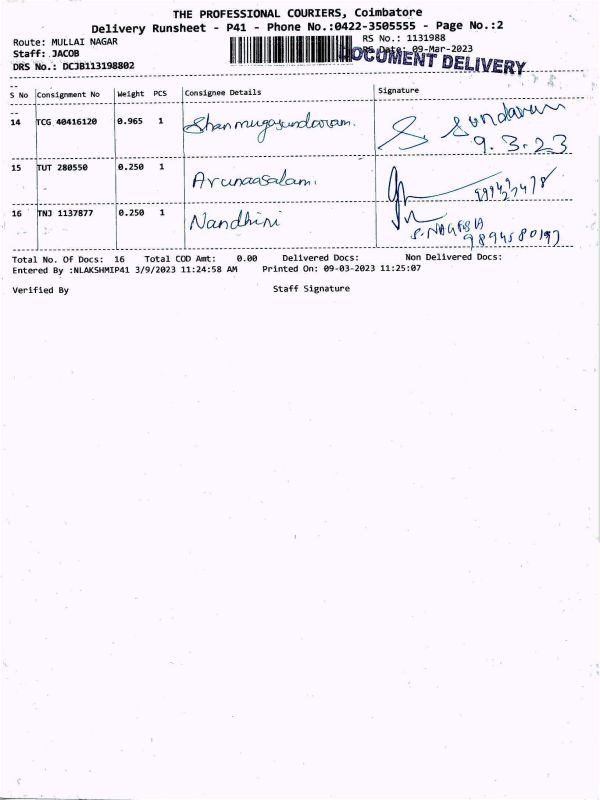 THE PROFESSIONAL COURIERS, Coimbatore
Delivery Runsheet - P41 - Phone No.:0422-3505555 - Page No.:2
Route: MULLAI NAGAR RS No.: 1131988
Staff: JACOB RS Date: 09-Mar-2023
DOCUMENT DELIVERY
DRS No.: DCJB113198802
S No Consignment No Weight PCS Consignee Details Signature
14 TCG 40416120 0.965 1 Shanmugasundaram. S. Sundaram
9.3.23
15 TUT 280550 0.250 1 Arunaasalam.
16 TNJ 1137877 0.250 1 Nandhini
S.NAGESH
Total No. Of Docs: 16 Total COD Amt: 0.00 Delivered Docs: Non Delivered Docs:
Entered By :NLAKSHMIP41 3/9/2023 11:24:58 AM Printed On: 09-03-2023 11:25:07
Verified By Staff Signature